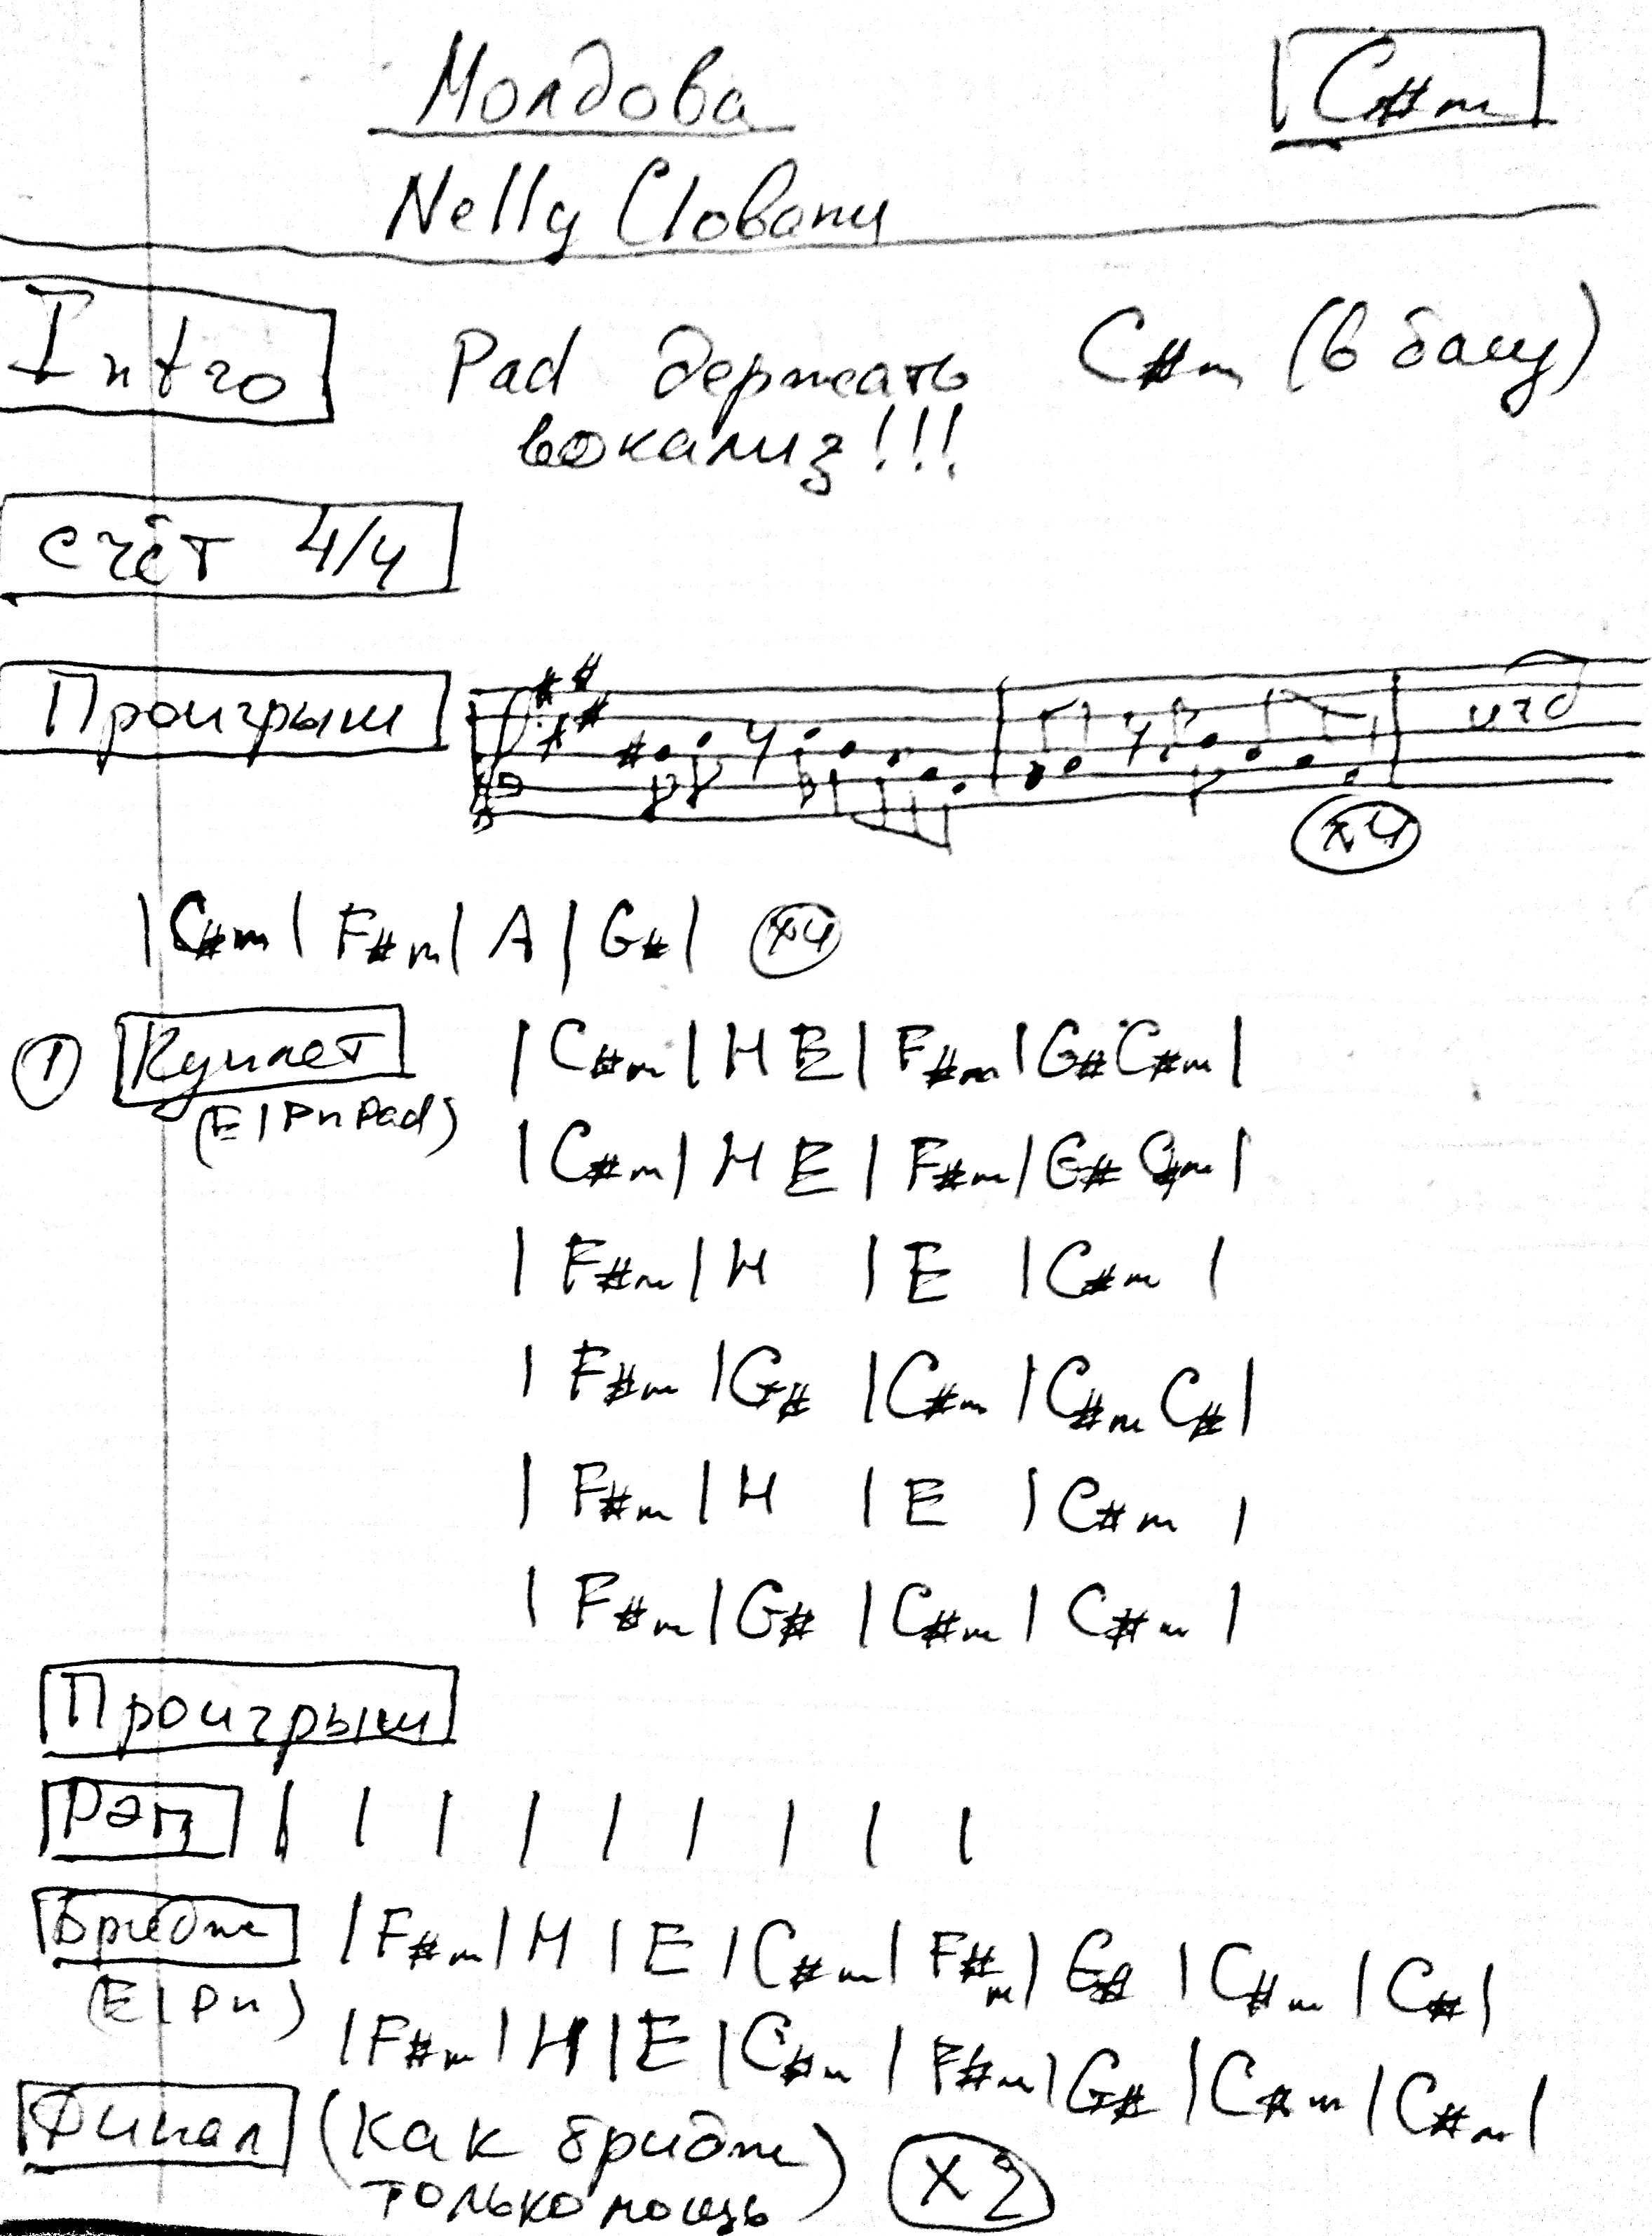 Молдова
C#m
Nelly CIobanu
Intro Pad держать C#m (в басу)
вокализ!!!
счёт 4/4
Проигрыш итд
x4
|C#m| F#m| A | G#| x4
1 Куплет |C#m| H E| F#m |G# C#m|
(E|Pn Pad)
|C#m| H E | F#m| G# C#m|
| F#m| H | E | C#m |
| F#m |G# |C#m | C#m C#|
| F#m| H | E | C#m |
| F#m|G# |C#m| C#m |
Проигрыш
Рэп | | | | | | | | |
Бридж |F#m| H | E |C#m| F#m| G# | C#m | C#|
(E|Pn)
|F#m| H | E |C#m | F#m|G# |C#m |C#m|
Финал (как бридж) x2
только мощь